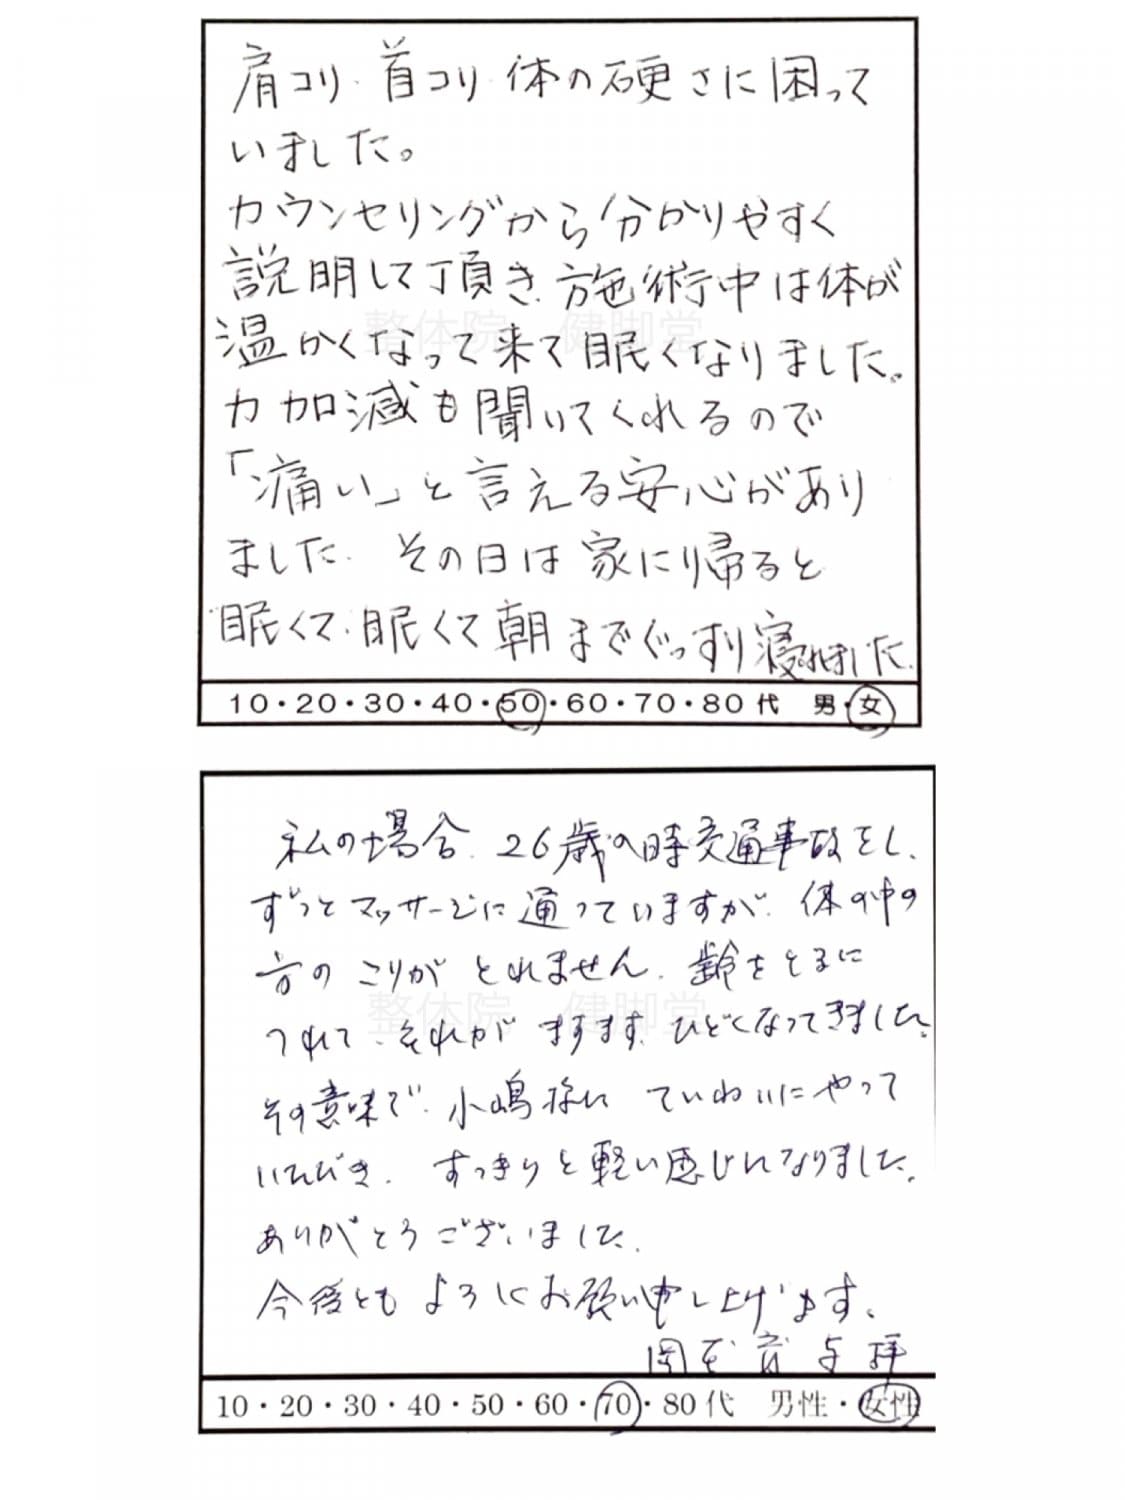 肩コリ 首コリ 体の硬さに困って
いました。
カウンセリングから分かりやすく
説明して頂き 施術中は体が
温かくなって来て眠くなりました。
力加減も聞いてくれるので
「痛い」と言える安心があり
ました. その日は家に帰ると
眠くて. 眠くて朝までぐっすり寝れました.
10・20・30・40・50・60・70・80代 男・女
整体院 健脚堂
私の場合. 26歳の時交通事故をし、
ずっとマッサージに通っていますが. 体の中の
方のこりがとれません. 齢をとるに
つれて. それがますます. ひどくなってきました.
その意味で. 小嶋様に ていねいにやって
いただき. すっきりと軽い感じになりました.
ありがとうございました.
今後ともよろしくお願い申し上げます.
拝
10・20・30・40・50・60・70・80代 男性・女性
整体院 健脚堂